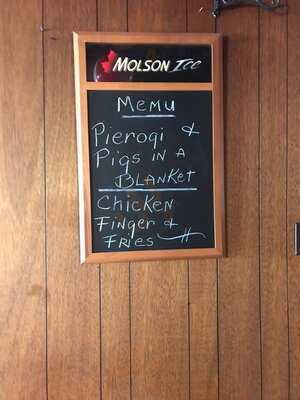 MOLSON ICE
MEMU
PIEROGI &
PIGS IN A
BLANKET
CHICKEN
FINGER &
FRIES